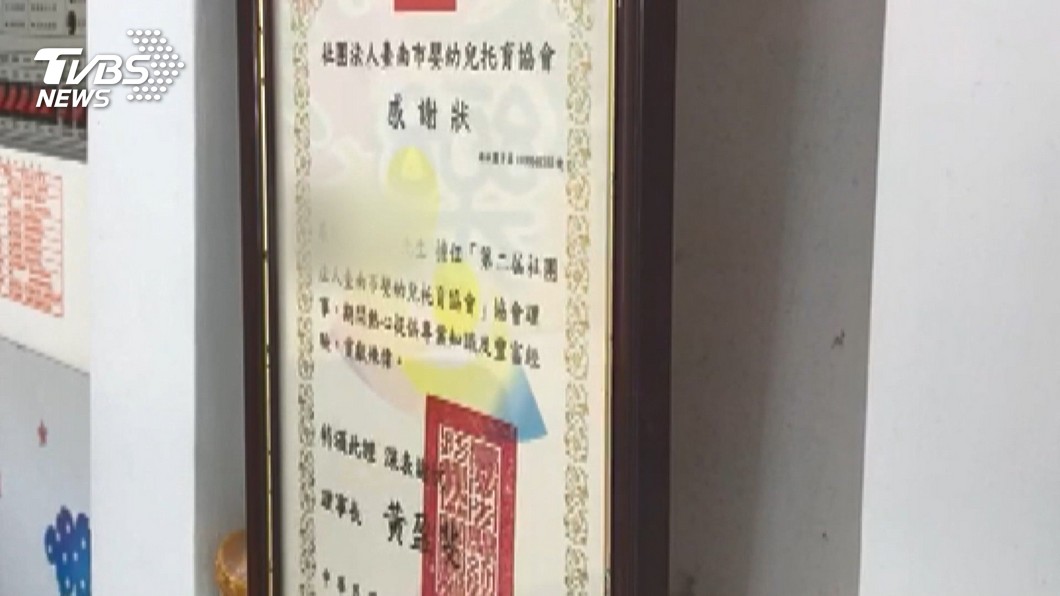 TVBS
NEWS
社團法人臺南市嬰幼兒托育協會
感謝狀
擔任「第二屆社團
法人臺南市嬰幼兒托育協會」協會理
事，期間熱心提供專業知識及豐富經
驗，貢獻殊偉。
特頒此證 深表謝
理事長 黃盈斐
中華民